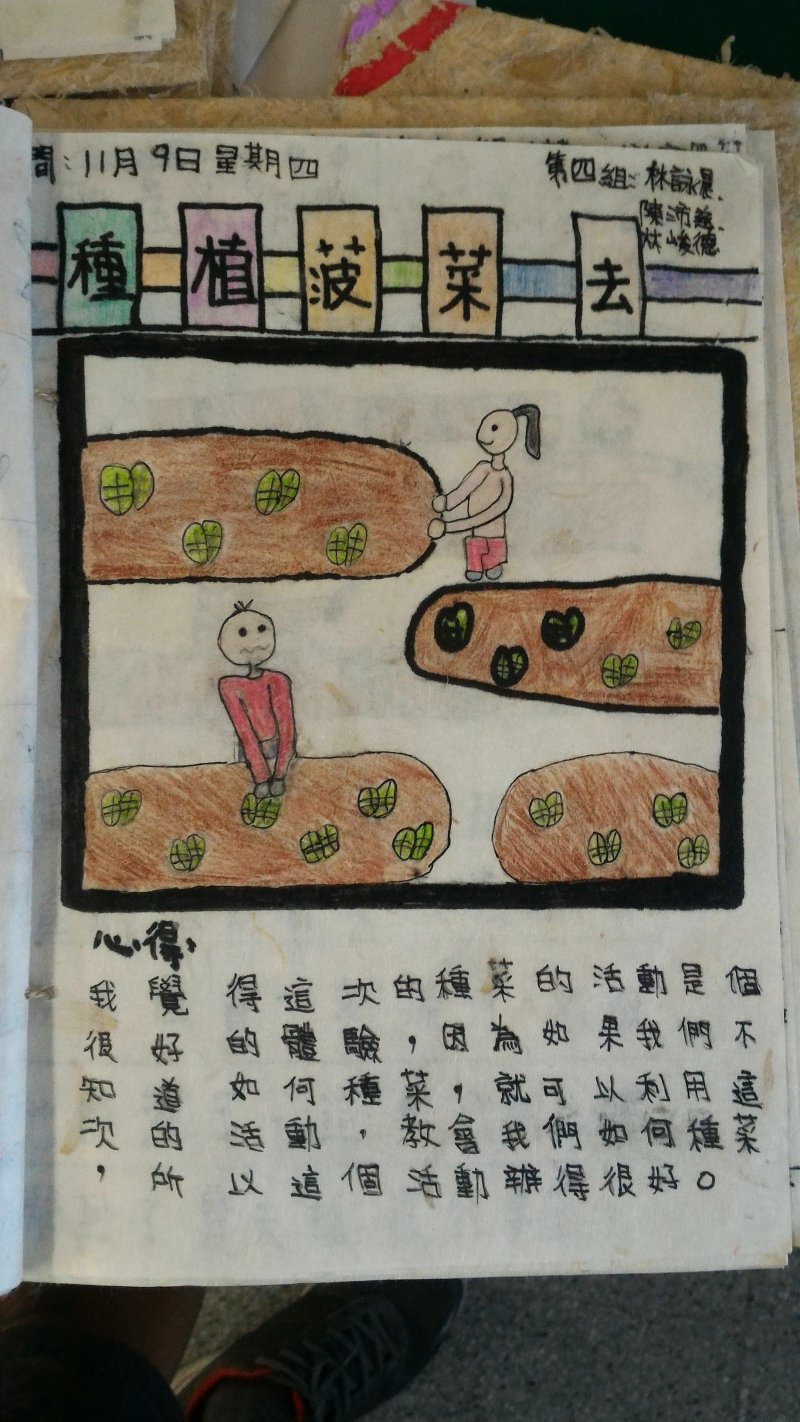 間：11月9日星期四
第四組：林詠晨、
陳沛
林峻德
種植菠菜去
心得：
我覺得這次的種菜的活動是個
很好的體驗，因為如果我們不
知道如何種菜，就可以利用這
次的活動，教會我們如何種菜
，所以這個活動辦得很好。